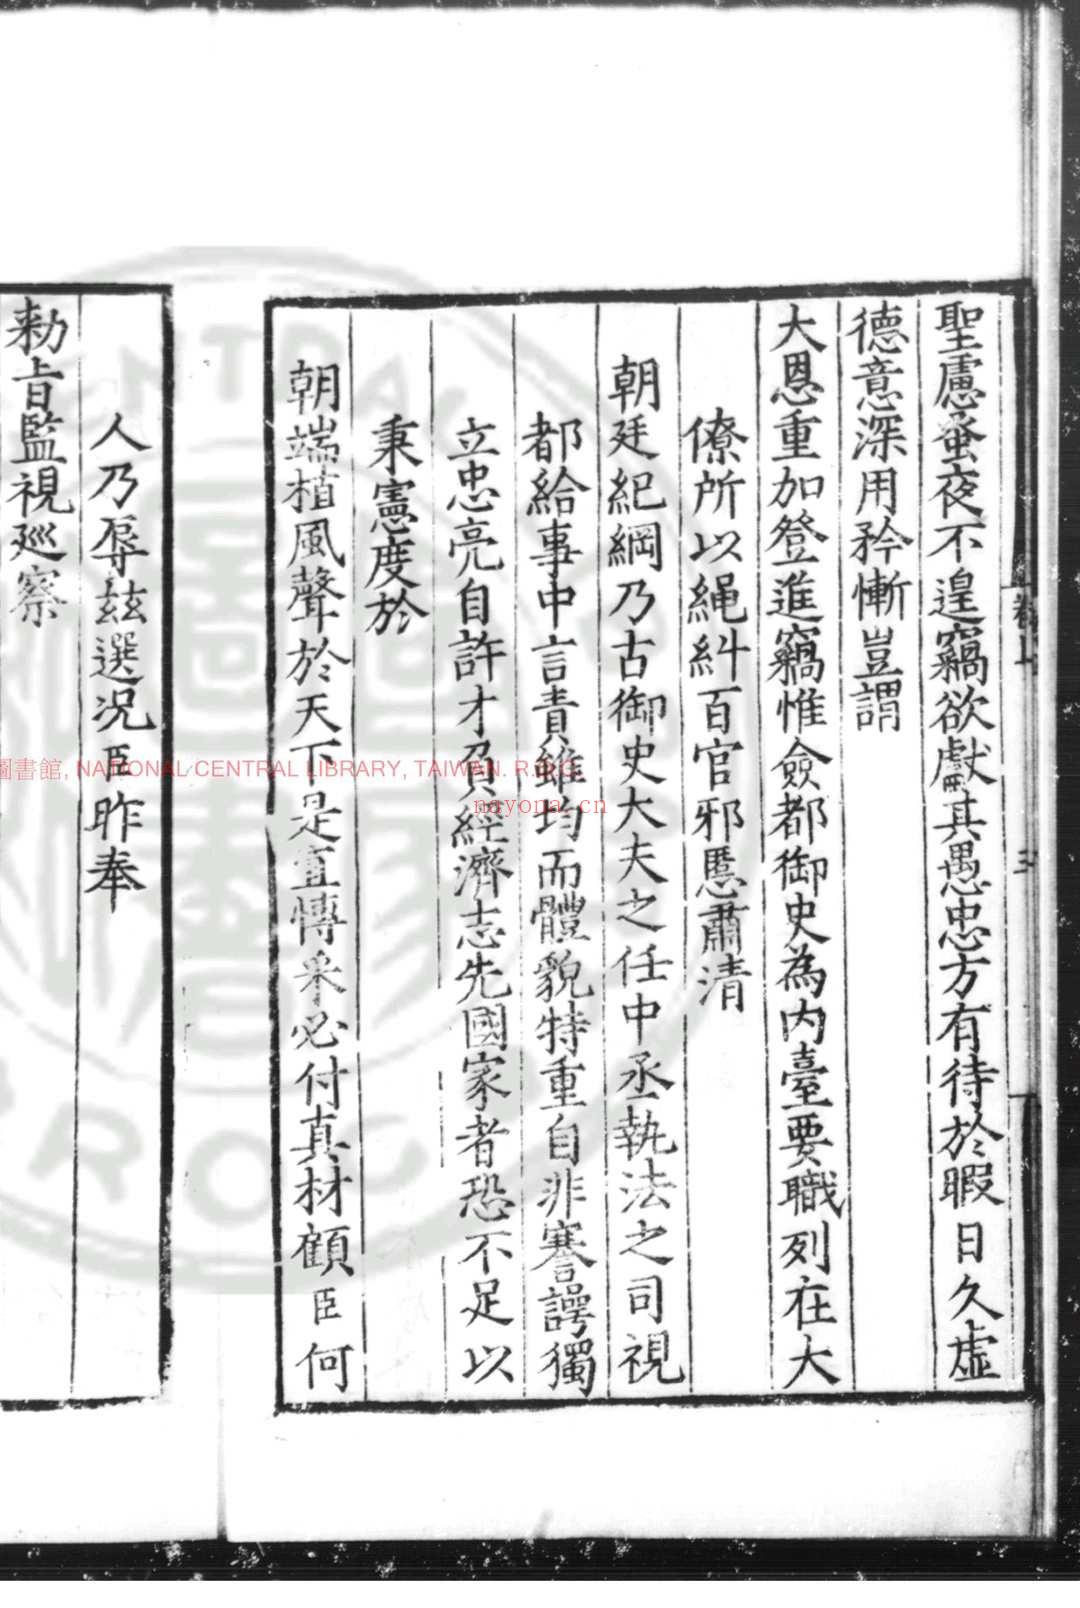 聖慮蚤夜不遑竊欲獻其愚忠方有待於暇日久虛
德意深用矜慚豈謂
大恩重加登進竊惟僉都御史為內臺要職列在大
僚所以繩糾百官邪慝肅清
朝廷紀綱乃古御史大夫之任中丞執法之司視
都給事中言責雖均而體貌特重自非謇諤獨
立忠亮自許才負經濟志先國家者恐不足以
秉憲度於
朝端植風聲於天下是宜博采必付真材顧臣何
人乃辱玆選况臣昨奉
勑旨監視廵察
三
圖書館, NATIONAL CENTRAL LIBRARY, TAIWAN. R.O.C.
nayona.cn